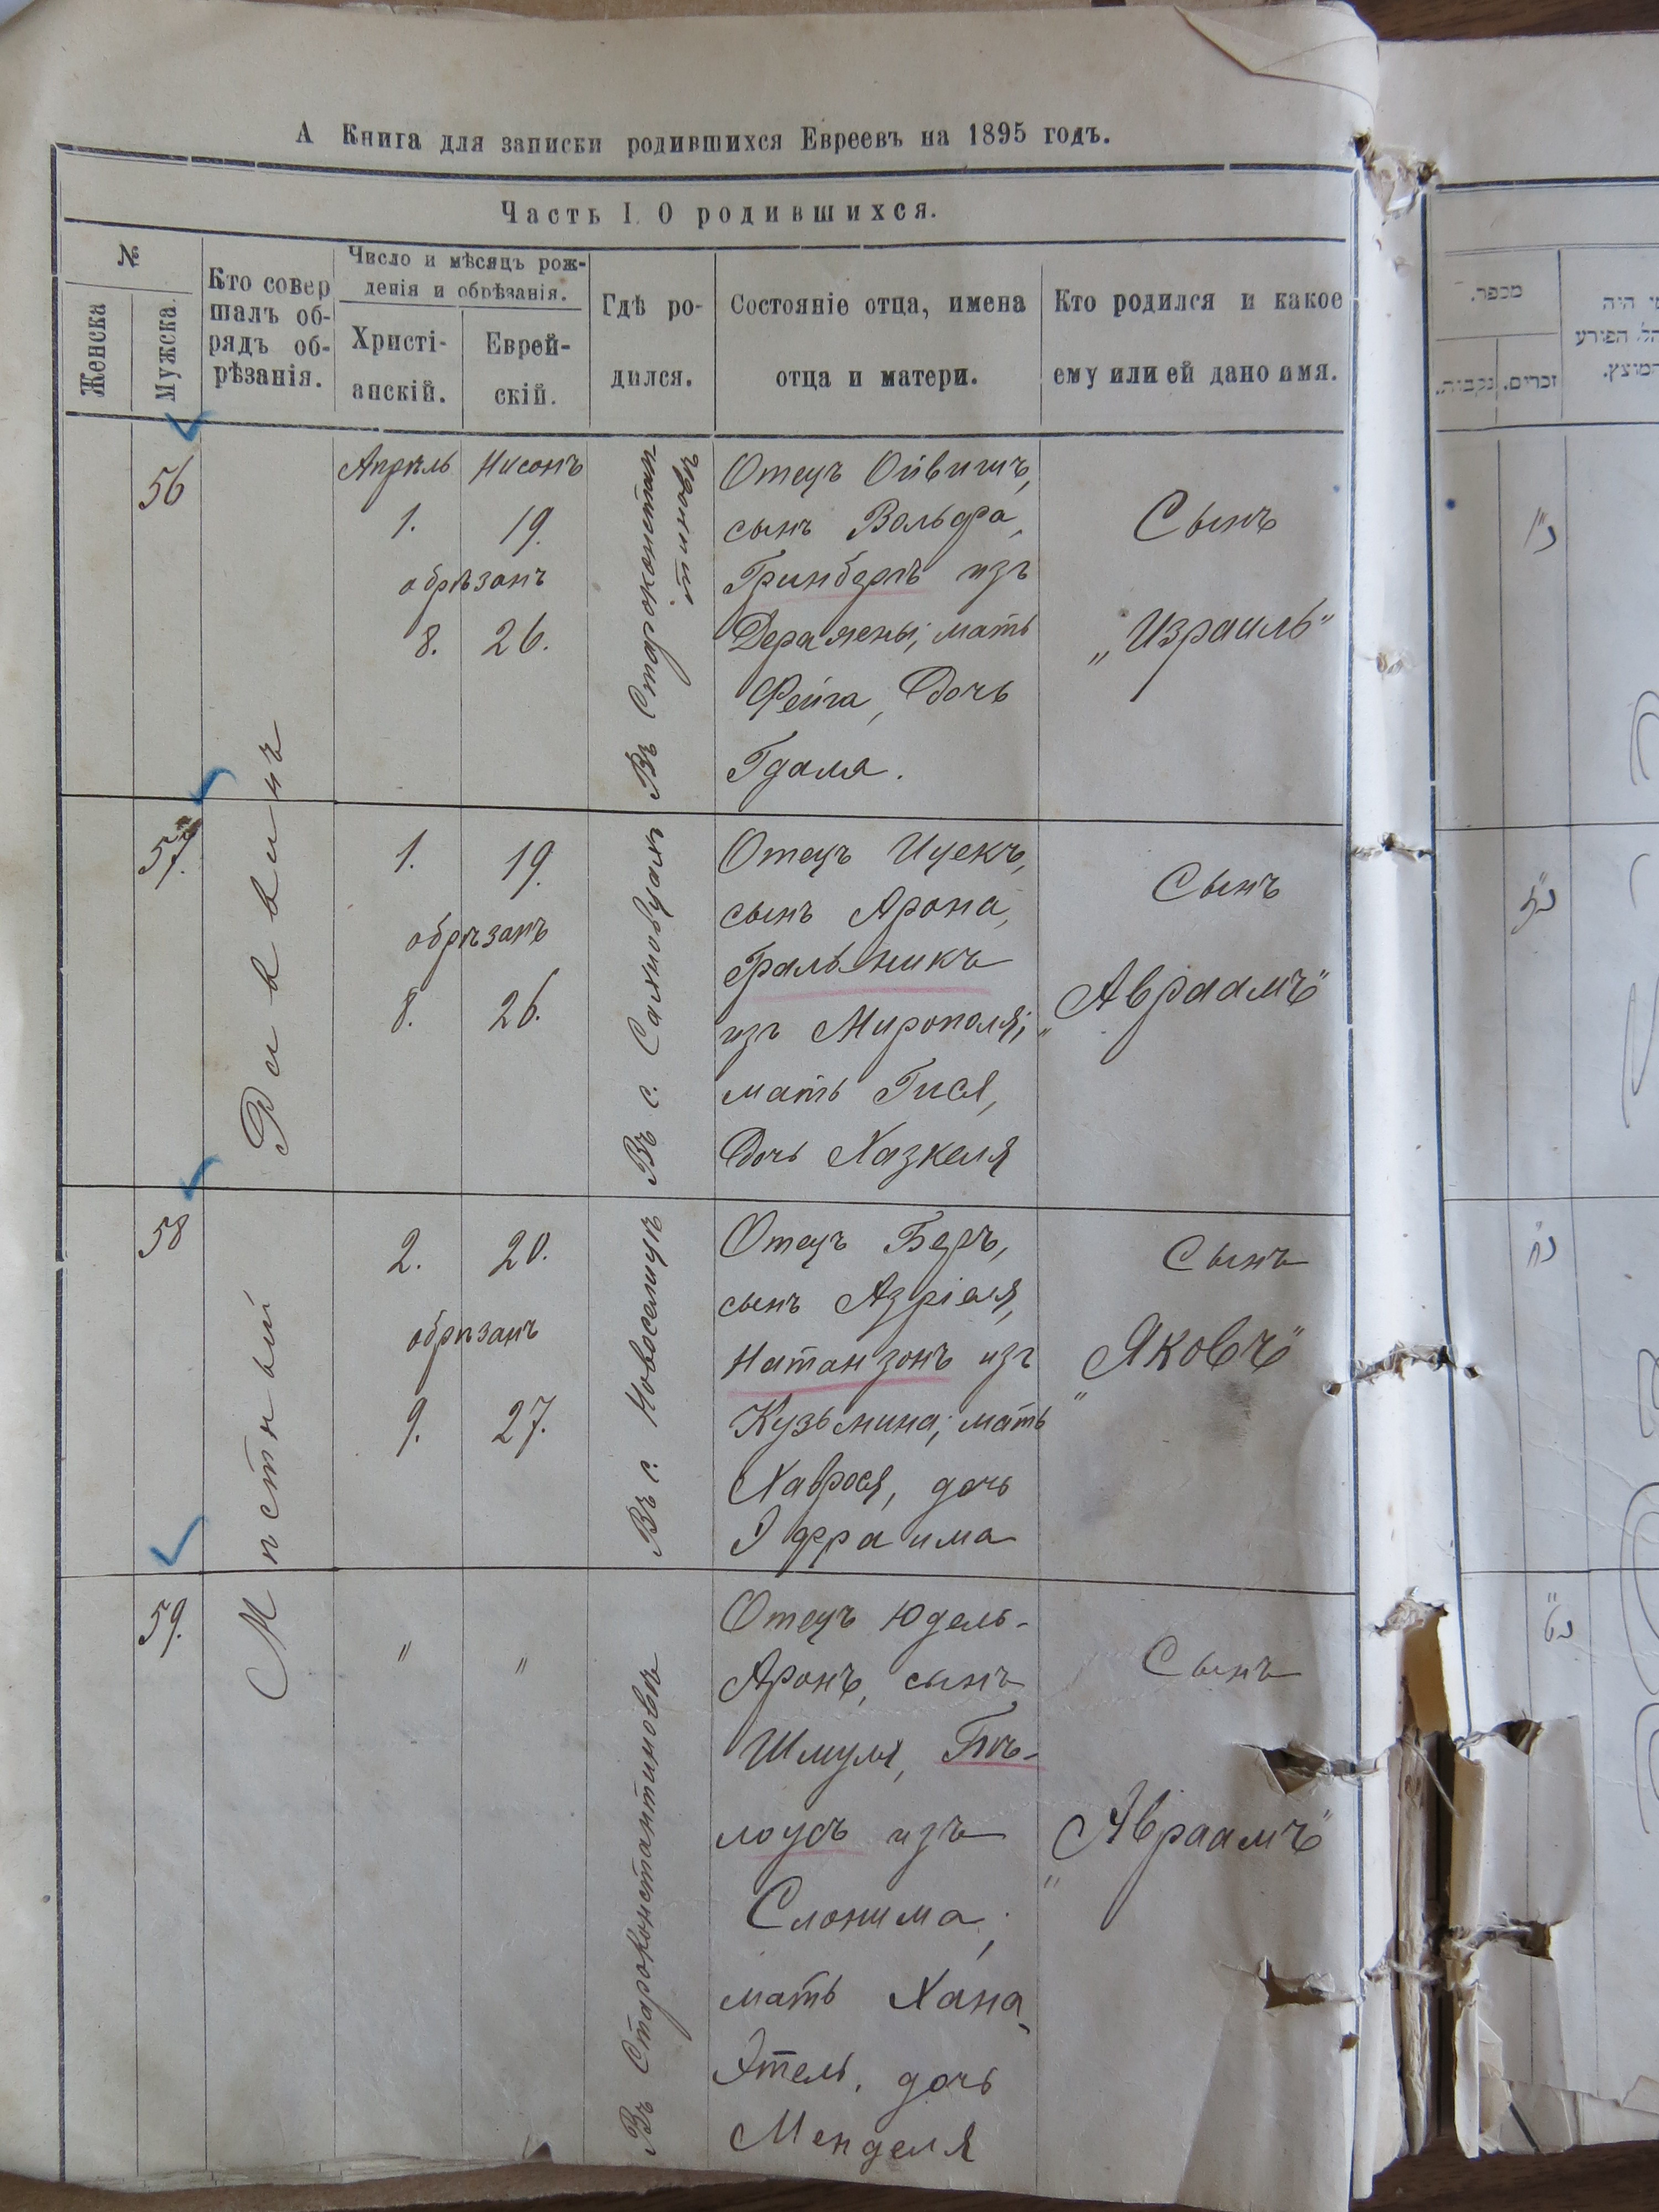 А Книга для записки родившихся Евреевъ на 1895 годъ.
Часть I. О родившихся.
№
Женска
Мужска
Кто совер
шалъ об-
рядъ об-
рѣзанія.
Число и мѣсяцъ рож-
денія и обрѣзанія.
Христі-
анскій.
Еврей-
скій.
Гдѣ ро-
дился.
Состояніе отца, имена
отца и матери.
Кто родился и какое
ему или ей дано имя.
Мѣстный Раввинъ
56
Апрѣль Нисонъ
1. 19.
обрѣзанъ
8. 26.
Въ Староконстан
тиновѣ
Отецъ Ойвишъ,
сынъ Вольфа,
Гринбергъ изъ
Деражены; мать
Фейга, дочь
Гдаля.
Сынъ
„Израиль“
57.
1. 19.
обрѣзанъ
8. 26.
Въ с.
Отецъ Ицекъ,
сынъ Арона,
Гральникъ
изъ Мирополя;
мать Гися,
дочь Хазкеля
Сынъ
„Авраамъ“
58
2. 20.
обрѣзанъ
9. 27.
Въ с. Новоселицѣ
Отецъ Беръ,
сынъ Азріеля,
Натанзонъ изъ
Кузьмина; мать
дочь
Эфраима
Сынъ
„Яковъ“
59.
" "
Въ Староконстантиновѣ
Отецъ Юдель-
Аронъ, сынъ
Шмуля, Бѣ-
лоусъ изъ
Слонима;
мать Хана
Этель, дочь
Менделя
Сынъ
„Авраамъ“
מספר.
זכרים. נקבות.
מי היה
המוהל הפורע
והמוצץ.
כ"ו
כ"ז
כ"ח
כ"ט